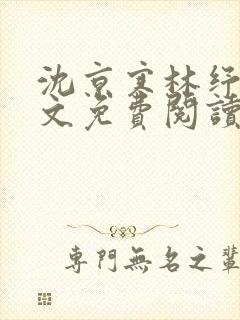 沈京寒林紓
文免費閱讀
專門無名之輩